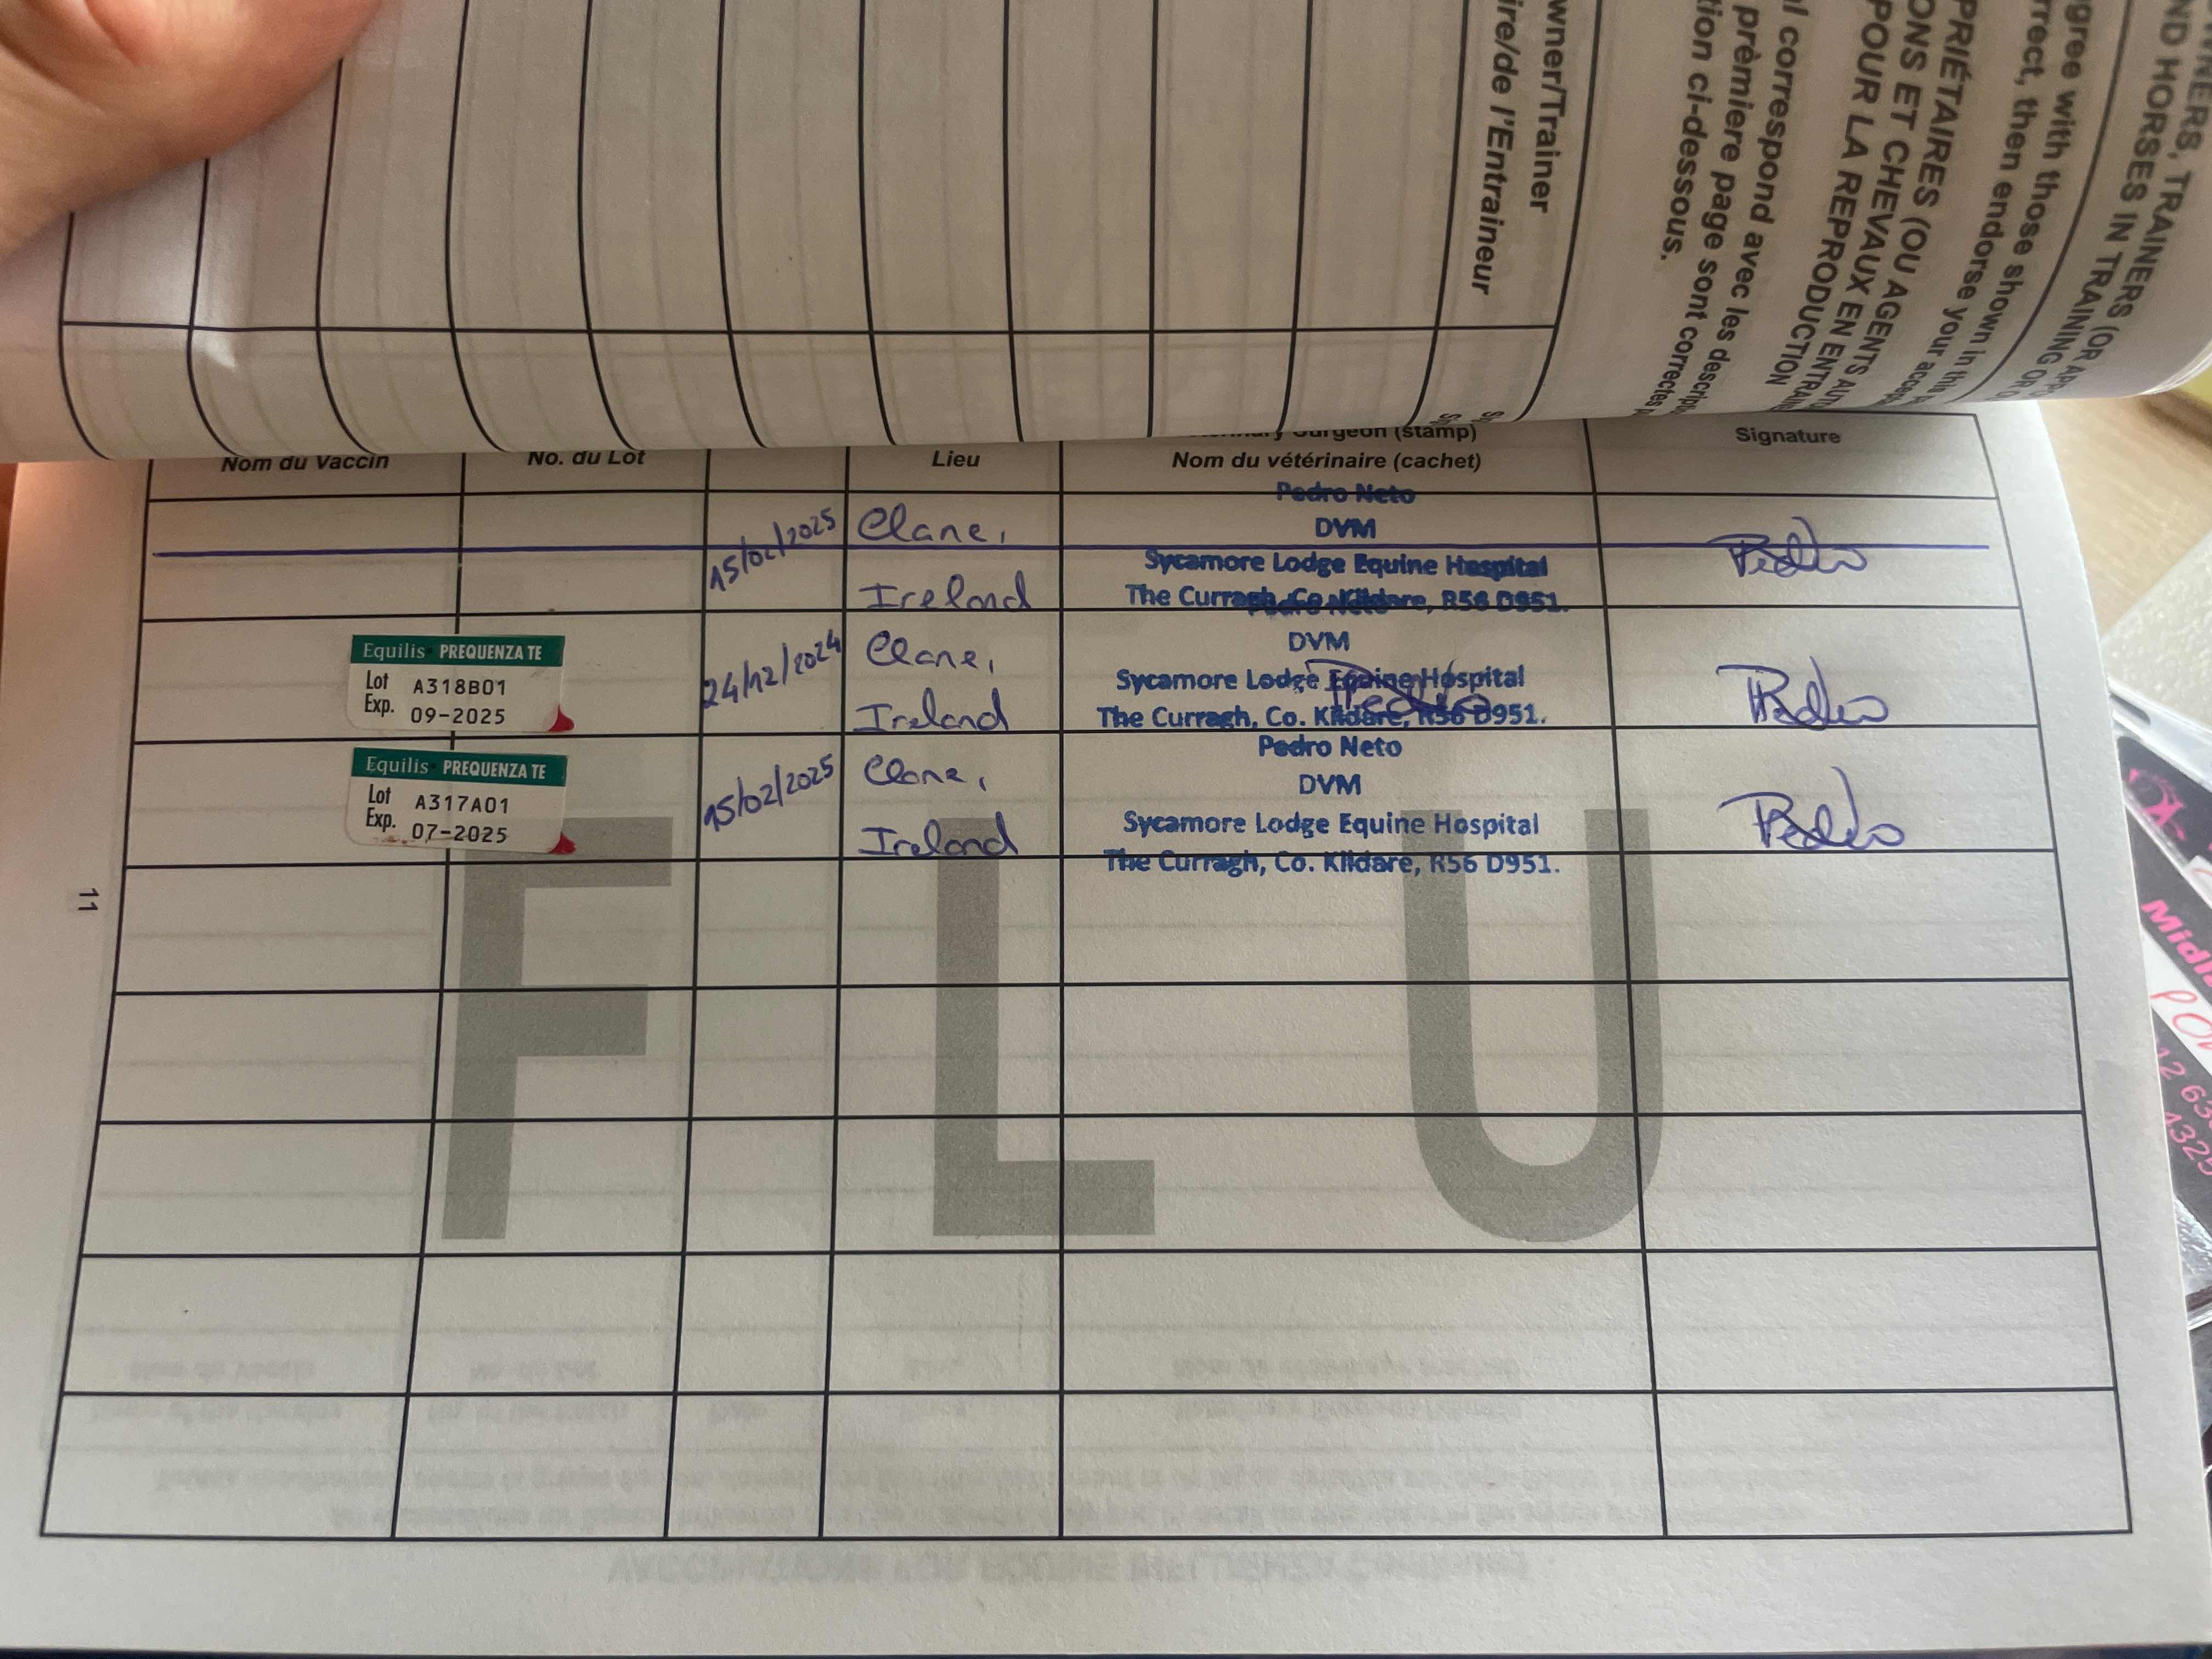 wner/Trainer
ire/de l'Entraineur
NERS, TRAINERS (OR APP
ND HORSES IN TRAINING OR O
gree with those shown in this
rrect, then endorse your
PRIÉTAIRES (OU AGENTS
ONS ET CHEVAUX EN
POUR LA REPRODUCTION
l correspond avec les
prèmiere page sont correctes
tion ci-dessous.
Surgeon (stamp)
Signature
Nom du Vaccin
No. du Lot
Lieu
Nom du vétérinaire (cachet)
15/02/2025
Clane,
Ireland
Pedro Neto
DVM
Sycamore Lodge Equine Hospital
The Curragh, Co. Kildare, R56 D951.
Pedro
Equilis PREQUENZA TE
Lot A318B01
Exp. 09-2025
24/12/2024
Clane,
Ireland
Pedro Neto
DVM
Sycamore Lodge Equine Hospital
The Curragh, Co. Kildare, R56 D951.
Pedro
Pedro
Equilis PREQUENZA TE
Lot A317A01
Exp. 07-2025
15/02/2025
Clane,
Ireland
Pedro Neto
DVM
Sycamore Lodge Equine Hospital
The Curragh, Co. Kildare, R56 D951.
Pedro
FLU
11